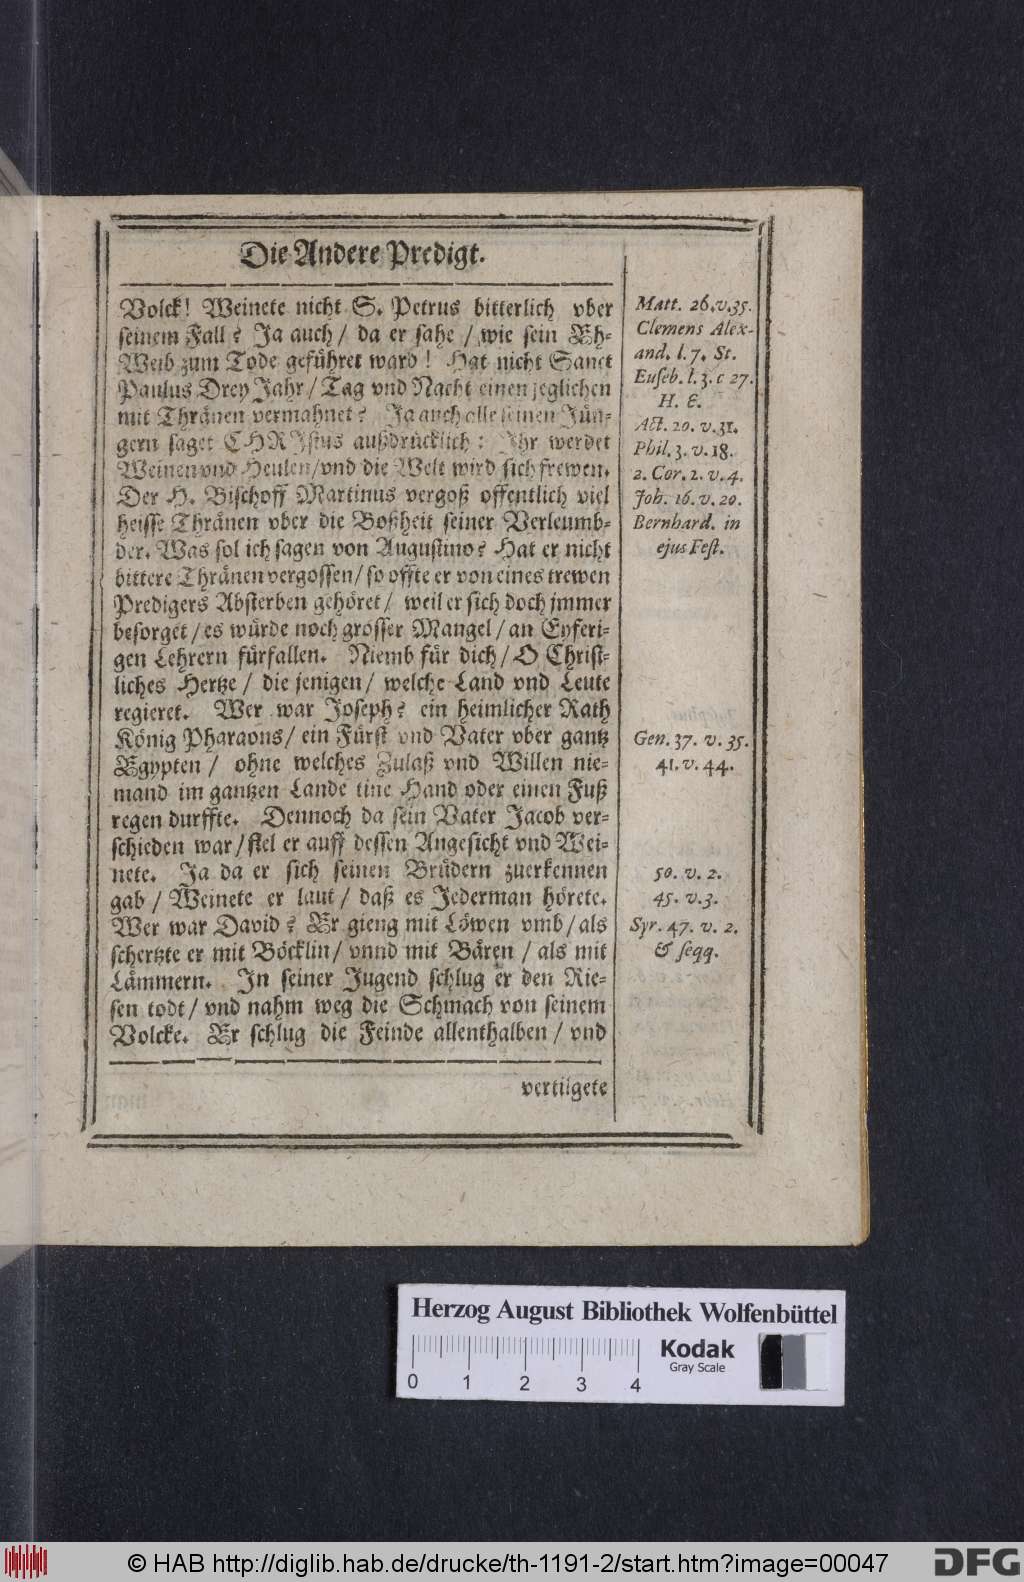 Die Andere Predigt.
Volck! Weinete nicht S. Petrus bitterlich vber
seinem Fall? Ja auch / da er sahe / wie sein Eh-
Weib zum Tode geführet ward! Hat nicht Sanct
Paulus Drey Jahr / Tag vnd Nacht einen jeglichen
mit Thränen vermahnet? Ja auch alle seinen Jün-
gern saget CHRIstus außdrücklich: Ihr werdet
Weinen vnd Heulen / vnd die Welt wird sich frewen.
Der H. Bischoff Martinus vergoß offentlich viel
heisse Thränen vber die Boßheit seiner Verleumb-
der. Was sol ich sagen von Augustino? Hat er nicht
bittere Thränen vergossen / so offte er von eines trewen
Predigers Absterben gehöret / weil er sich doch jmmer
besorget / es würde noch grösser Mangel / an Eyferi-
gen Lehrern fürfallen. Niemb für dich / O Christ-
liches Hertze / die jenigen / welche Land vnd Leute
regieret. Wer war Joseph? ein heimlicher Rath
König Pharaons / ein Fürst vnd Vater vber gantz
Egypten / ohne welches Zulaß vnd Willen nie-
mand im gantzen Lande eine Hand oder einen Fuß
regen durffte. Dennoch da sein Vater Jacob ver-
schieden war / fiel er auff dessen Angesicht vnd Wei-
nete. Ja da er sich seinen Brüdern zuerkennen
gab / Weinete er laut / daß es Jederman hörete.
Wer war David? Er gieng mit Löwen vmb / als
schertzte er mit Böcklin / vnnd mit Bären / als mit
Lämmern. In seiner Jugend schlug er den Rie-
sen todt / vnd nahm weg die Schmach von seinem
Volcke. Er schlug die Feinde allenthalben / vnd
vertilgete
Matt. 26. v. 35.
Clemens Alex-
and. l. 7. St.
Euseb. l. 3. c 27.
H. E.
Act. 20. v. 31.
Phil. 3. v. 18.
2. Cor. 2. v. 4.
Joh. 16. v. 20.
Bernhard. in
ejus Fest.
Gen. 37. v. 35.
41. v. 44.
50. v. 2.
45. v. 3.
Syr. 47. v. 2.
& seqq.
Herzog August Bibliothek Wolfenbüttel
Kodak
Gray Scale
0 1 2 3 4
© HAB http://diglib.hab.de/drucke/th-1191-2/start.htm?image=00047
DFG